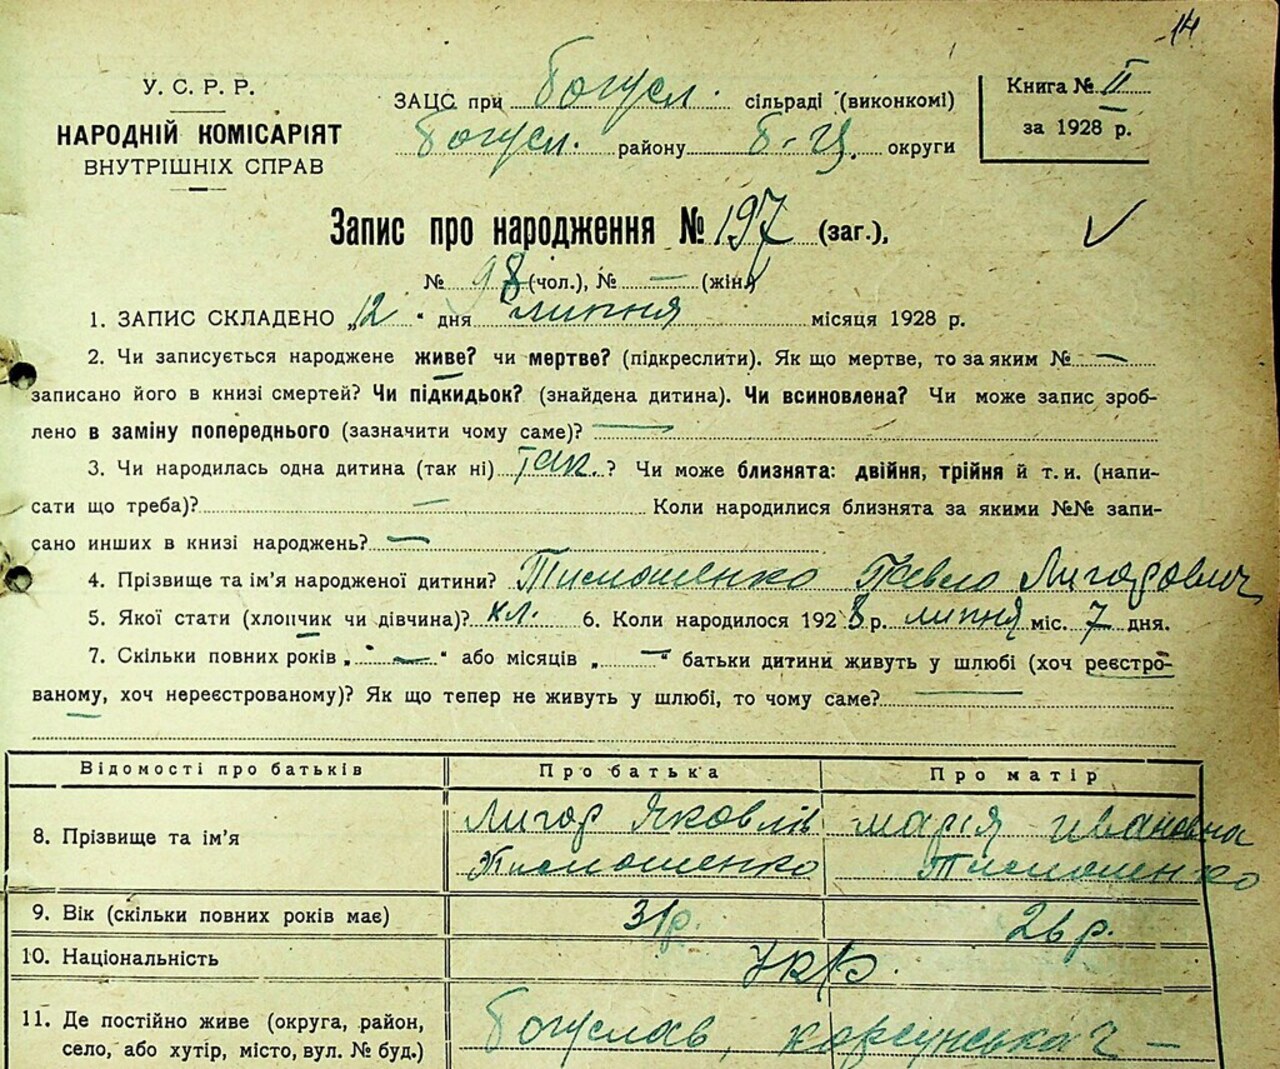 14
У. С. Р. Р.
НАРОДНІЙ КОМІСАРІЯТ
ВНУТРІШНІХ СПРАВ
ЗАЦС при Богусл. сільраді (виконкомі)
Богусл. району Б-Ц. округи
Книга № II
за 1928 р.
Запис про народження № 197 (заг.),
№ 98 (чол.), № — (жін.)
1. ЗАПИС СКЛАДЕНО „12" дня липня місяця 1928 р.
2. Чи записується народжене живе? чи мертве? (підкреслити). Як що мертве, то за яким № —
записано його в книзі смертей? Чи підкидьок? (знайдена дитина). Чи всиновлена? Чи може запис зроб-
лено в заміну попереднього (зазначити чому саме)? —
3. Чи народилась одна дитина (так ні) так. ? Чи може близнята: двійня, трійня й т. и. (напи-
сати що треба)? — Коли народилися близнята за якими №№ запи-
сано инших в книзі народжень? —
4. Прізвище та ім'я народженої дитини? Тимошенко Павло Лигорович
5. Якої стати (хлопчик чи дівчина)? хл. 6. Коли народилося 1928 р. липня міс. 7 дня.
7. Скільки повних років „ — " або місяців „ — " батьки дитини живуть у шлюбі (хоч реєстро-
ваному, хоч нереєстрованому)? Як що тепер не живуть у шлюбі, то чому саме? —
Відомості про батьків Про батька Про матір
8. Прізвище та ім'я Лигор Яковлів Марія Ивановна
Тимошенко Тимошенко
9. Вік (скільки повних років має) 31 р. 26 р.
10. Національність Укр.
11. Де постійно живе (округа, район,
село, або хутір, місто, вул. № буд.) Богуслав, Корсунська